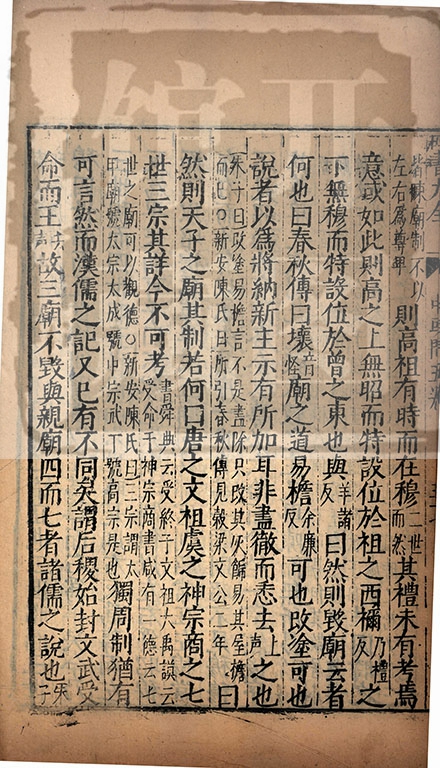 皆陳廟制不以左右爲尊卑則高祖有時而在穆二世而然其禮未有考焉
意或如此則高之上無昭而特設位於祖之西禰乃禮反之
下無穆而特設位於曾之東也與羊諸反曰然則毀廟云者
何也曰春秋傳曰壞音怪廟之道易檐余廉反可也改塗可也
說者以爲將納新主示有所加耳非盡徹而悉去上聲之也
朱子曰改塗易檐言不是盡除只改其灰飾易其屋檐而已○新安陳氏曰所引春秋傳見穀梁文公二年曰
然則天子之廟其制若何曰唐之文祖虞之神宗商之七
世三宗其詳今不可考書舜典云受終于文祖大禹謨云受命于神宗商書咸有一德云七
世之廟可以觀德○新安陳氏曰三宗謂太甲廟號太宗太戊號中宗武丁號高宗是也獨周制猶有
可言然而漢儒之記又已有不同矣謂后稷始封文武受
命而王去聲故三廟不毀與親廟四而七者諸儒之說也朱子